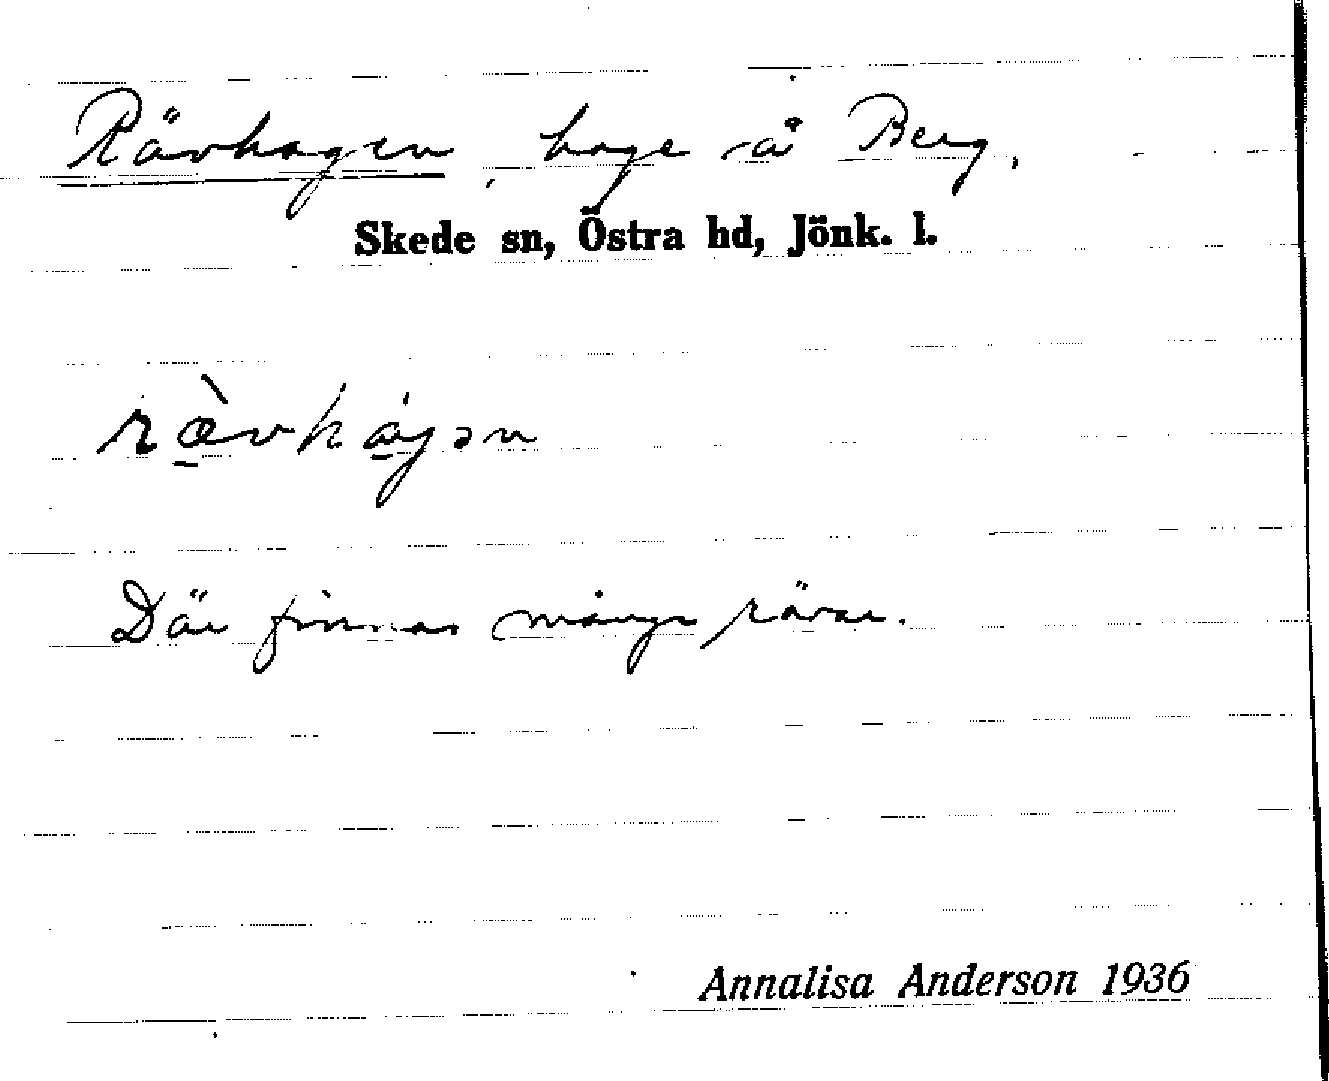 Rävhagen, hage å Berg.
Skede sn, Östra hd, Jönk. l.
ræ̀vhágən
Där finnas många rävar.
Annalisa Anderson 1936